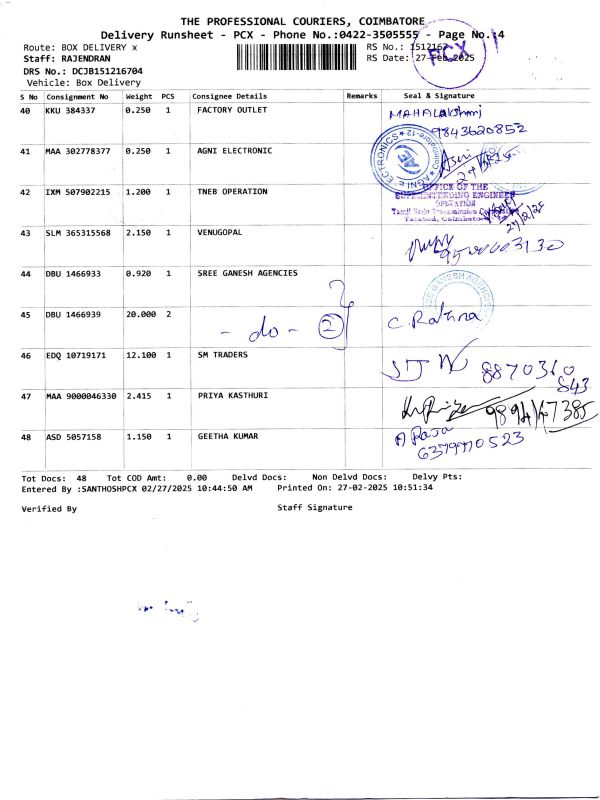 THE PROFESSIONAL COURIERS, COIMBATORE
Delivery Runsheet - PCX - Phone No.:0422-3505555 - Page No.:4
Route: BOX DELIVERY x
RS No.: 1512167
PCX
Staff: RAJENDRAN
RS Date: 27-Feb-2025
DRS No.: DCJB151216704
Vehicle: Box Delivery
S No Consignment No Weight PCS Consignee Details Remarks Seal & Signature
40 KKU 384337 0.250 1 FACTORY OUTLET MAHALAkshmi
9843620852
41 MAA 302778377 0.250 1 AGNI ELECTRONIC
42 IXM 507902215 1.200 1 TNEB OPERATION OFFICE OF THE
SUPERINTENDING ENGINEER
OPERATION
27/2/25
43 SLM 365315568 2.150 1 VENUGOPAL
9500003130
44 DBU 1466933 0.920 1 SREE GANESH AGENCIES
45 DBU 1466939 20.000 2 - do - 2 C. Rathna
46 EDQ 10719171 12.100 1 SM TRADERS 8870360
843
47 MAA 9000046330 2.415 1 PRIYA KASTHURI
48 ASD 5057158 1.150 1 GEETHA KUMAR
6379770523
Tot Docs: 48 Tot COD Amt: 0.00 Delvd Docs: Non Delvd Docs: Delvy Pts:
Entered By :SANTHOSHPCX 02/27/2025 10:44:50 AM Printed On: 27-02-2025 10:51:34
Verified By Staff Signature